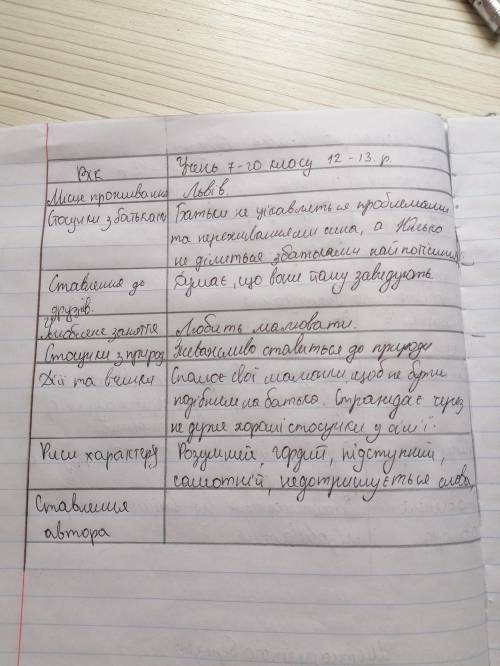 Вік Учень 7-го класу 12-13.р.
Місце проживання Львів.
Стосунки з батьками Батьки не цікавляться проблемами
та переживаннями сина, а
не ділиться з батьками найпотішним.
Ставлення до Думає, що вони йому заведують
друзів.
Улюблене заняття Любить малювати.
Стосунки з природ Зневажливо ставиться до природи
Дії та вчинки Спалює свої малюнки щоб не бути
подібним на батька. Страждає через
не дуже хороші стосунки у сім'ї.
Риси характеру Розумний, гордий, підступний,
самотній, недотримується слова,
Ставлення
автора